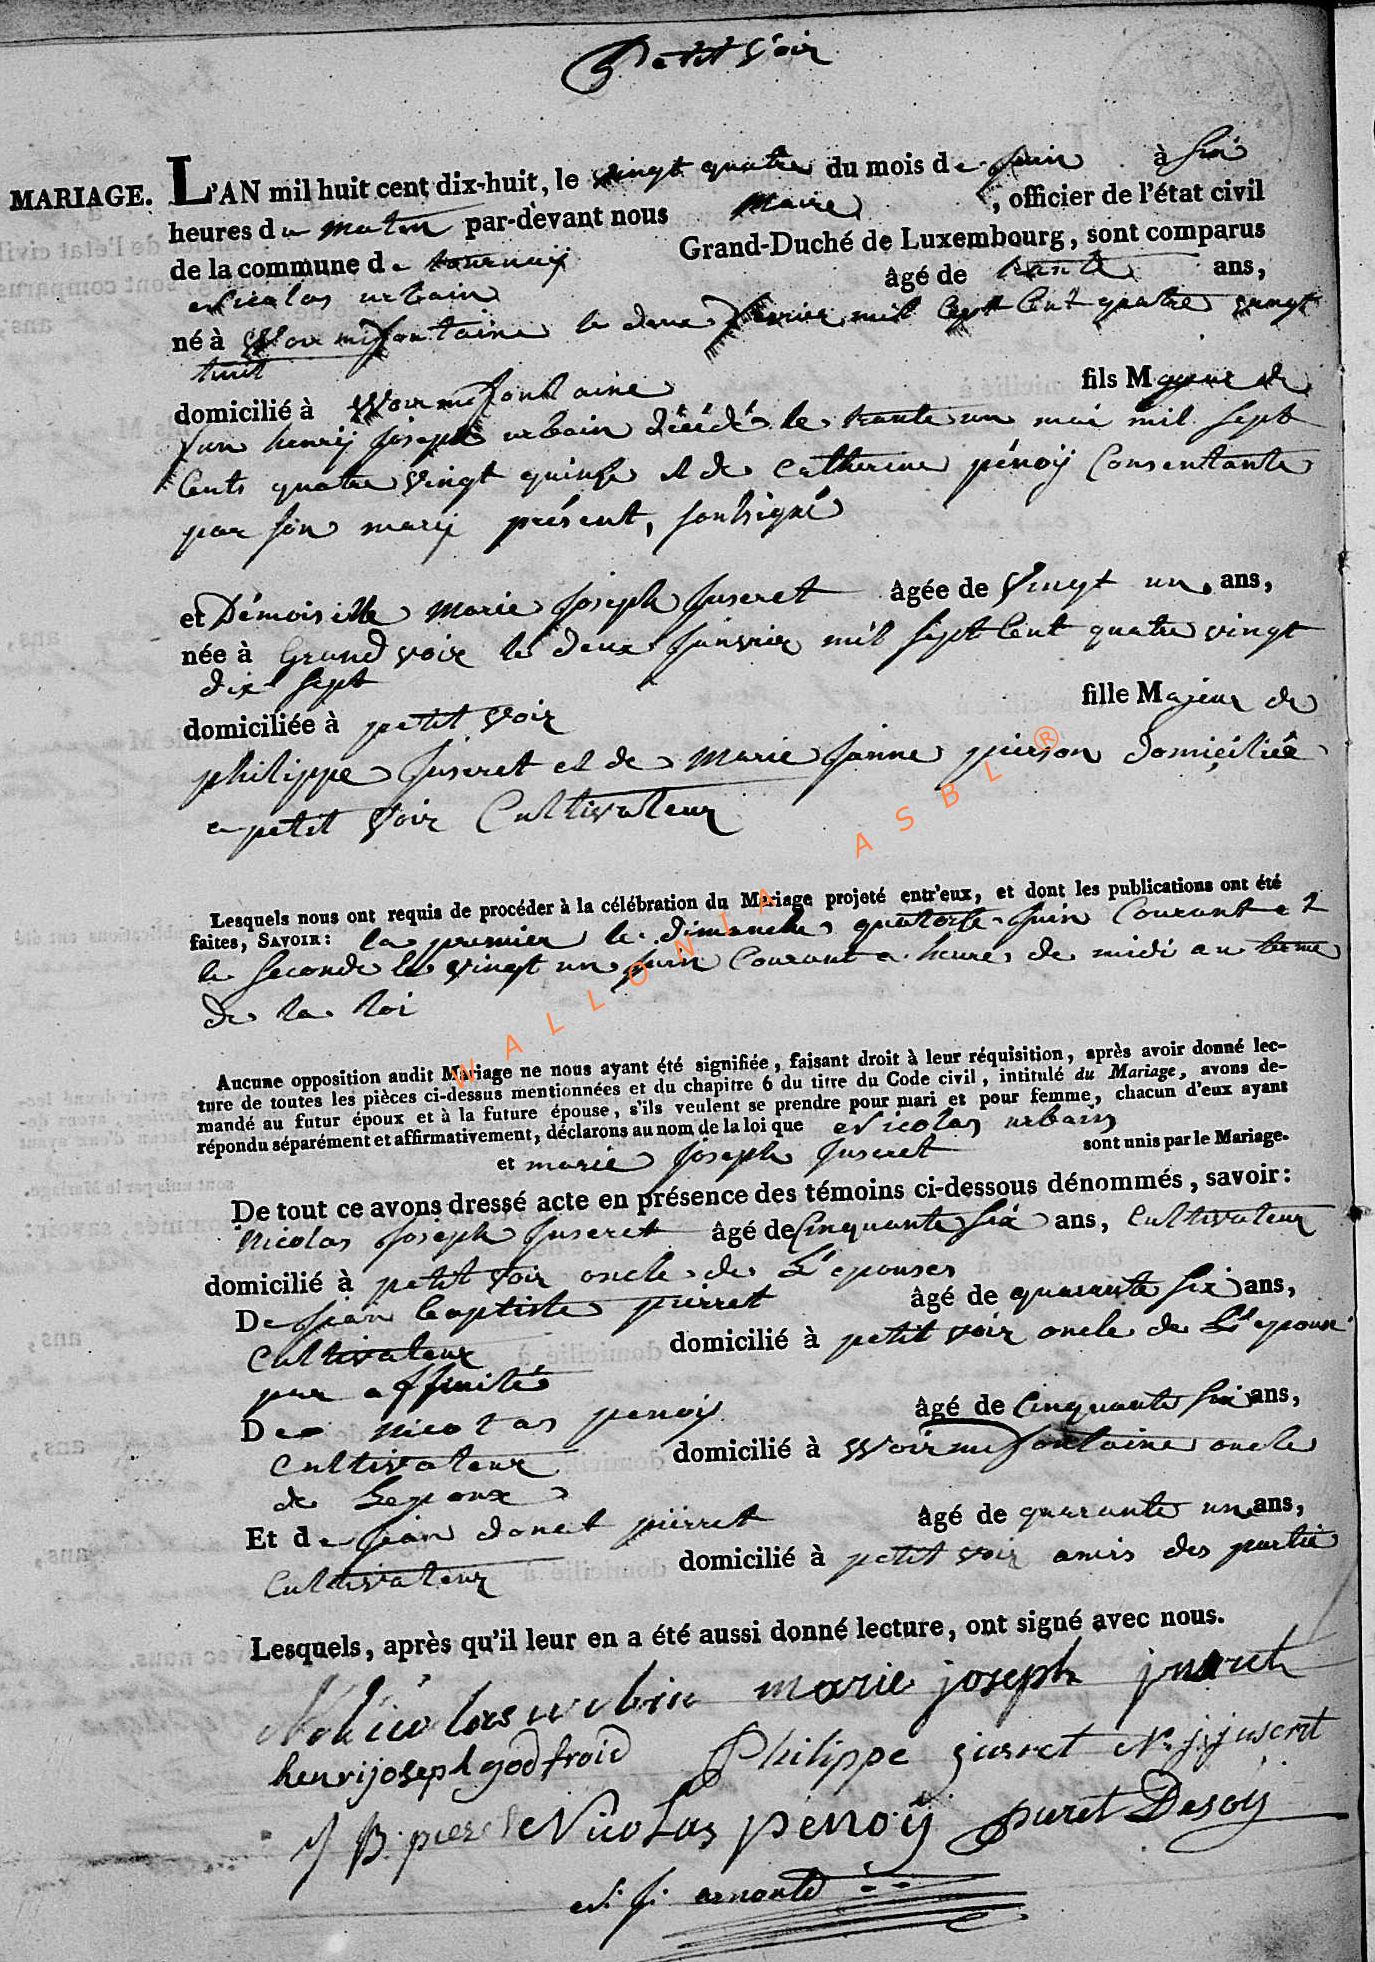 Petit Voir
MARIAGE. L'AN mil huit cent dix-huit, le vingt quatre du mois de juin à six
heures du matin par-devant nous Maire , officier de l'état civil
de la commune de tournay Grand-Duché de Luxembourg, sont comparus
Nicolas urbain âgé de trente ans,
né à Warmifontaine le deux fevrier mil sept Cent quatre vingt
huit
domicilié à Warmifontaine fils Majeur de
feu henrij joseph urbain décédé le trente un mai mil sept
Cents quatre vingt quinze et de catherine pénoij Consentante
par son marij présent, soubsigné
et Démoiselle marie joseph juseret âgée de Vingt un ans,
née à Grand voir le deux janvier mil sept Cent quatre vingt
dix sept
domiciliée à petit voir fille Majeur de
philippe juseret et de marie janne pierson domiciliée
a petit Voir Cultivateur
Lesquels nous ont requis de procéder à la célébration du Mariage projeté entr'eux, et dont les publications ont été
faites, SAVOIR: la premier le dimanche quatorse juin Courant et
le seconde le vingt un juin Courant a heure de midi au terme
de la loi
Aucune opposition audit Mariage ne nous ayant été signifiée, faisant droit à leur réquisition, après avoir donné lec-
ture de toutes les pièces ci-dessus mentionnées et du chapitre 6 du titre du Code civil, intitulé du Mariage, avons de-
mandé au futur époux et à la future épouse, s'ils veulent se prendre pour mari et pour femme, chacun d'eux ayant
répondu séparément et affirmativement, déclarons au nom de la loi que Nicolas urbain
et marie joseph juseret sont unis par le Mariage.
De tout ce avons dressé acte en présence des témoins ci-dessous dénommés, savoir:
Nicolas joseph juseret âgé de Cinquante six ans, Cultivateur
domicilié à petit voir oncle de L'epouses
De jean baptiste pierret âgé de quarante six ans,
Cultivateur domicilié à petit voir oncle de L'epouse
par affinité
De nicolas penoij âgé de Cinquante six ans,
Cultivateur domicilié à Warmifontaine oncle
de Lepoux
Et de jean donat pierret âgé de quarante un ans,
Cultivateur domicilié à petit voir amis des partie
Lesquels, après qu'il leur en a été aussi donné lecture, ont signé avec nous.
Nicolas urbin marie joseph jusreth
henrijoseph godfroid Philippe jusret N j juseret
J B pierret Nicolas penoij puret Desoij
N: j: arnould
WALLONIA ASBL ®